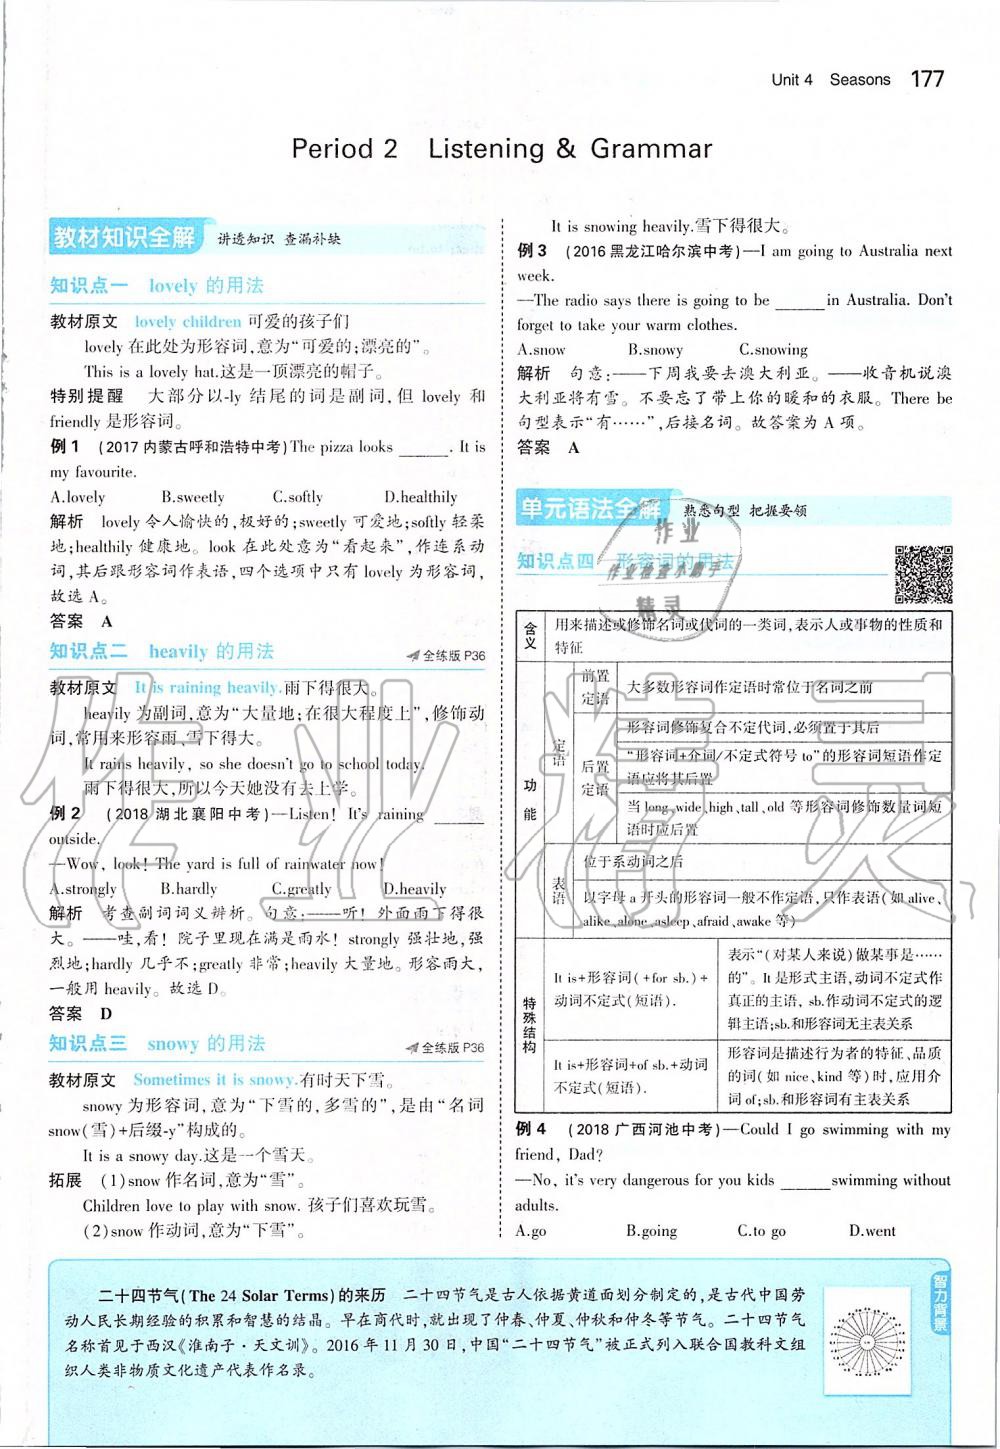 Unit 4 Seasons 177
Period 2 Listening & Grammar
教材知识全解 讲透知识 查漏补缺
知识点一 lovely 的用法
教材原文 lovely children 可爱的孩子们
lovely 在此处为形容词,意为“可爱的;漂亮的”。
This is a lovely hat.这是一顶漂亮的帽子。
特别提醒 大部分以-ly 结尾的词是副词,但 lovely 和
friendly 是形容词。
例 1 (2017 内蒙古呼和浩特中考)The pizza looks ______. It is
my favourite.
A.lovely B.sweetly C.softly D.healthily
解析 lovely 令人愉快的,极好的;sweetly 可爱地;softly 轻柔
地;healthily 健康地。look 在此处意为“看起来”,作连系动
词,其后跟形容词作表语,四个选项中只有 lovely 为形容词,
故选 A。
答案 A
知识点二 heavily 的用法 全练版 P36
教材原文 It is raining heavily.雨下得很大。
heavily 为副词,意为“大量地;在很大程度上”,修饰动
词,常用来形容雨、雪下得大。
It rains heavily, so she doesn't go to school today.
雨下得很大,所以今天她没有去上学。
例 2 (2018 湖北襄阳中考)—Listen! It's raining ______
outside.
—Wow, look! The yard is full of rainwater now!
A.strongly B.hardly C.greatly D.heavily
解析 考查副词词义辨析。句意:——听!外面雨下得很
大。——哇,看!院子里现在满是雨水!strongly 强壮地,强
烈地;hardly 几乎不;greatly 非常;heavily 大量地。形容雨大,
一般用 heavily。故选 D。
答案 D
知识点三 snowy 的用法 全练版 P36
教材原文 Sometimes it is snowy.有时天下雪。
snowy 为形容词,意为“下雪的,多雪的”,是由“名词
snow(雪)+后缀-y”构成的。
It is a snowy day.这是一个雪天。
拓展 (1)snow 作名词,意为“雪”。
Children love to play with snow. 孩子们喜欢玩雪。
(2)snow 作动词,意为“下雪”。
It is snowing heavily.雪下得很大。
例 3 (2016 黑龙江哈尔滨中考)—I am going to Australia next
week.
—The radio says there is going to be ______ in Australia. Don't
forget to take your warm clothes.
A.snow B.snowy C.snowing
解析 句意:——下周我要去澳大利亚。——收音机说澳
大利亚将有雪。不要忘了带上你的暖和的衣服。There be
句型表示“有……”,后接名词。故答案为 A 项。
答案 A
单元语法全解 熟悉句型 把握要领
知识点四 形容词的用法
含义 用来描述或修饰名词或代词的一类词,表示人或事物的性质和
特征
功能 定语 前置定语 大多数形容词作定语时常位于名词之前
后置定语 形容词修饰复合不定代词,必须置于其后
“形容词+介词/不定式符号 to”的形容词短语作定
语应将其后置
当 long、wide、high、tall、old 等形容词修饰数量词短
语时应后置
表语 位于系动词之后
以字母 a 开头的形容词一般不作定语,只作表语(如 alive、
alike、alone、asleep、afraid、awake 等)
特殊结构 It is+形容词(+for sb.)+
动词不定式(短语).
表示“(对某人来说)做某事是……
的”。It 是形式主语,动词不定式作
真正的主语, sb.作动词不定式的逻
辑主语;sb.和形容词无主表关系
It is+形容词+of sb.+动词
不定式(短语).
形容词是描述行为者的特征、品质
的词(如 nice、kind 等)时,应用介
词 of;sb.和形容词有主表关系
例 4 (2018 广西河池中考)—Could I go swimming with my
friend, Dad?
—No, it's very dangerous for you kids ______ swimming without
adults.
A.go B.going C.to go D.went
智力背景
二十四节气(The 24 Solar Terms)的来历 二十四节气是古人依据黄道面划分制定的,是古代中国劳
动人民长期经验的积累和智慧的结晶。早在商代时,就出现了仲春、仲夏、仲秋和仲冬等节气。二十四节气
名称首见于西汉《淮南子·天文训》。2016 年 11 月 30 日,中国“二十四节气”被正式列入联合国教科文组
织人类非物质文化遗产代表作名录。
作业精灵